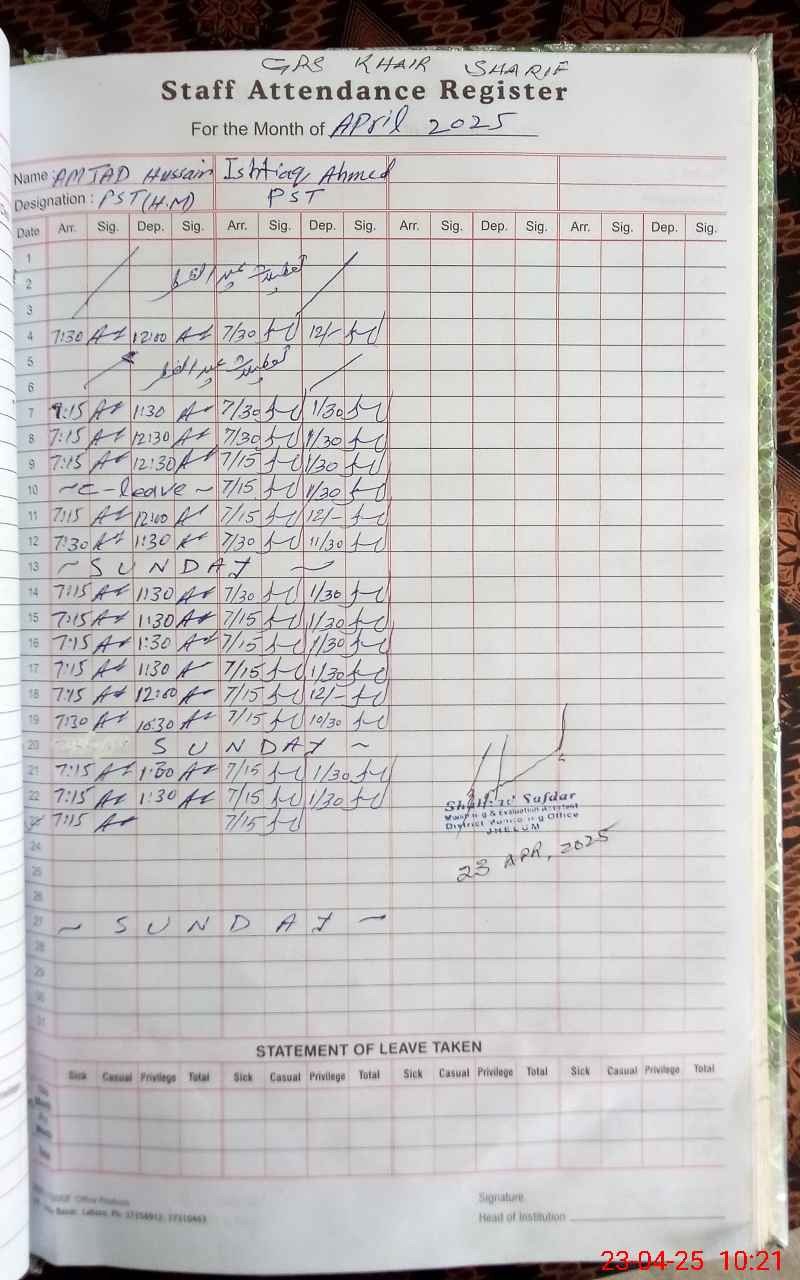 GPS KHAIR SHARIF
Staff Attendance Register
For the Month of APril 2025
Name : AMJAD Hussain Ishtiaq Ahmed
Designation : PST (H.M) PST
Date Arr. Sig. Dep. Sig. Arr. Sig. Dep. Sig. Arr. Sig. Dep. Sig. Arr. Sig. Dep. Sig.
1
2 تعطیلات عید الفطر
3
4 7:30 12:00 7/30 12/-
5 تعطیلات عید الفطر
6
7 7:15 1:30 7/30 1/30
8 7:15 12:30 7/30 1/30
9 7:15 12:30 7/15 1/30
10 ~ C-leave ~ 7/15 1/30
11 7:15 12:00 7/15 12/-
12 7:30 1:30 7/30 11/30
13 ~ SUNDAY ~
14 7:15 1:30 7/30 1/30
15 7:15 1:30 7/15 1/30
16 7:15 1:30 7/15 1/30
17 7:15 1:30 7/15 1/30
18 7:15 12:00 7/15 12/-
19 7:30 10:30 7/15 10/30
20 SUNDAY ~
21 7:15 1:30 7/15 1/30
22 7:15 1:30 7/15 1/30
23 7:15 7/15
Safdar
Monitoring & Evaluation Assistant
District Monitoring Office
JHELUM
23 APR, 2025
24
25
26
27 ~ SUNDAY ~
28
29
30
31
STATEMENT OF LEAVE TAKEN
Sick Casual Privilege Total Sick Casual Privilege Total Sick Casual Privilege Total Sick Casual Privilege Total
Office Products
Bazar, Lahore. Ph:
Signature
Head of Institution
23-04-25 10:21